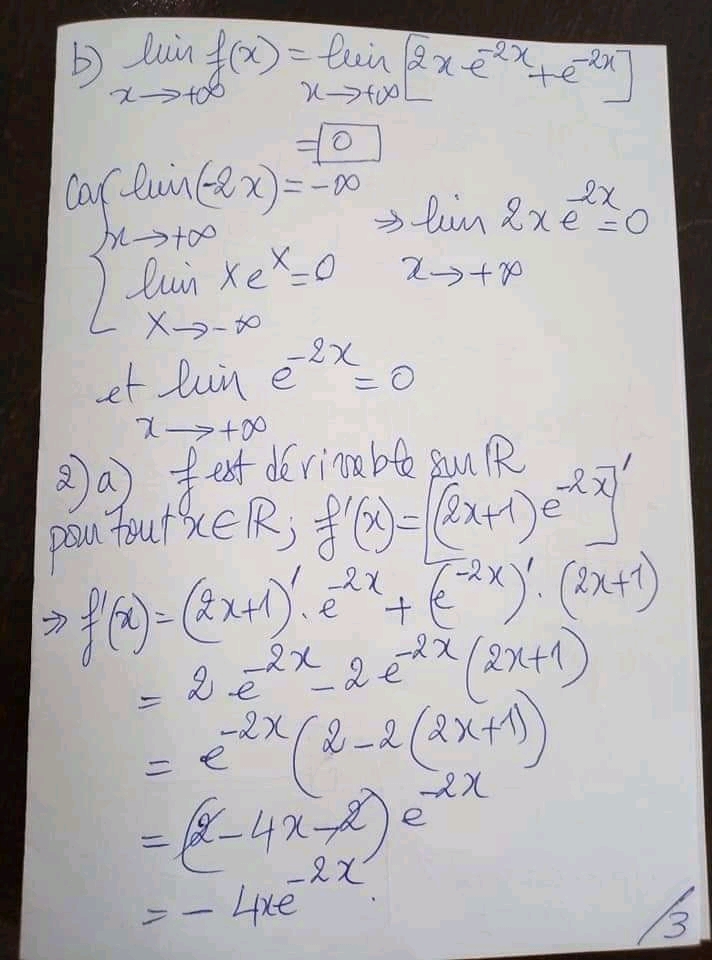 b) lim f(x) = lim [2x e^{-2x} + e^{-2x}]
x→+∞ x→+∞
= 0
Car lim(-2x) = -∞
x→+∞ ⇒ lim 2x e^{-2x} = 0
lim Xe^X = 0 x→+∞
X→-∞
et lim e^{-2x} = 0
x→+∞
2) a) f est dérivable sur ℝ
pour tout x∈ℝ ; f'(x) = [(2x+1) e^{-2x}]'
⇒ f'(x) = (2x+1)' . e^{-2x} + (e^{-2x})' . (2x+1)
= 2 e^{-2x} - 2 e^{-2x} (2x+1)
= e^{-2x} (2 - 2 (2x+1))
= (2 - 4x - 2) e^{-2x}
= - 4xe^{-2x}.
/3